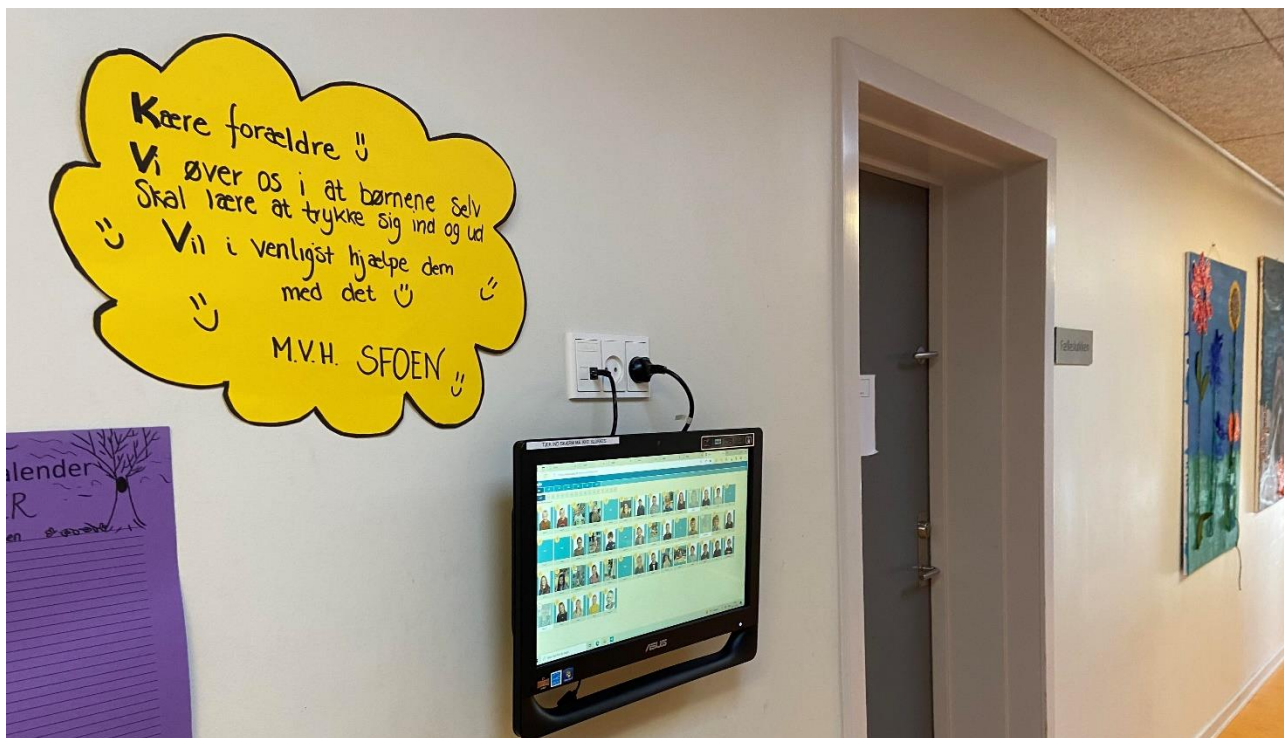 Kære forældre
Vi øver os i at børnene selv
Skal lære at trykke sig ind og ud
Vil i venligst hjælpe dem
med det
M.V.H. SFOEN
alender
R
en
ASUS
Fælleskøkken